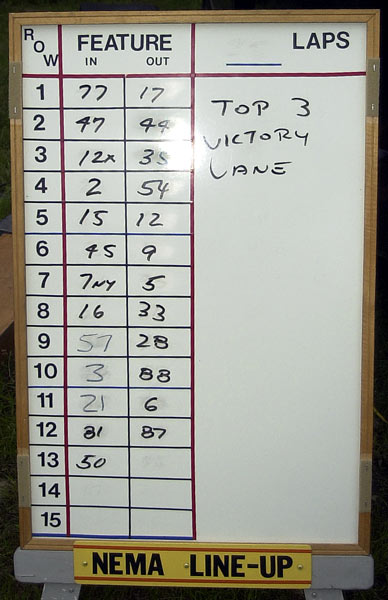 ROW FEATURE LAPS
IN OUT
1 77 17
2 47 44
3 12x 35
4 2 54
5 15 12
6 45 9
7 7NY 5
8 16 33
9 57 28
10 3 88
11 21 6
12 81 87
13 50
14
15
TOP 3
VICTORY
LANE
NEMA LINE-UP